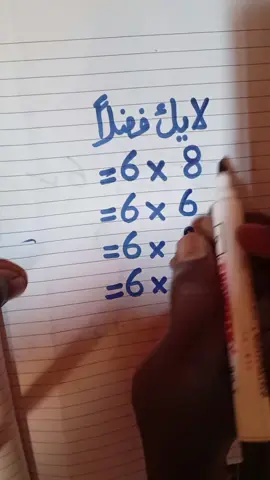 لايك فضلاً
8 × 6 =
6 × 6 =
× 6 =
× 6 =